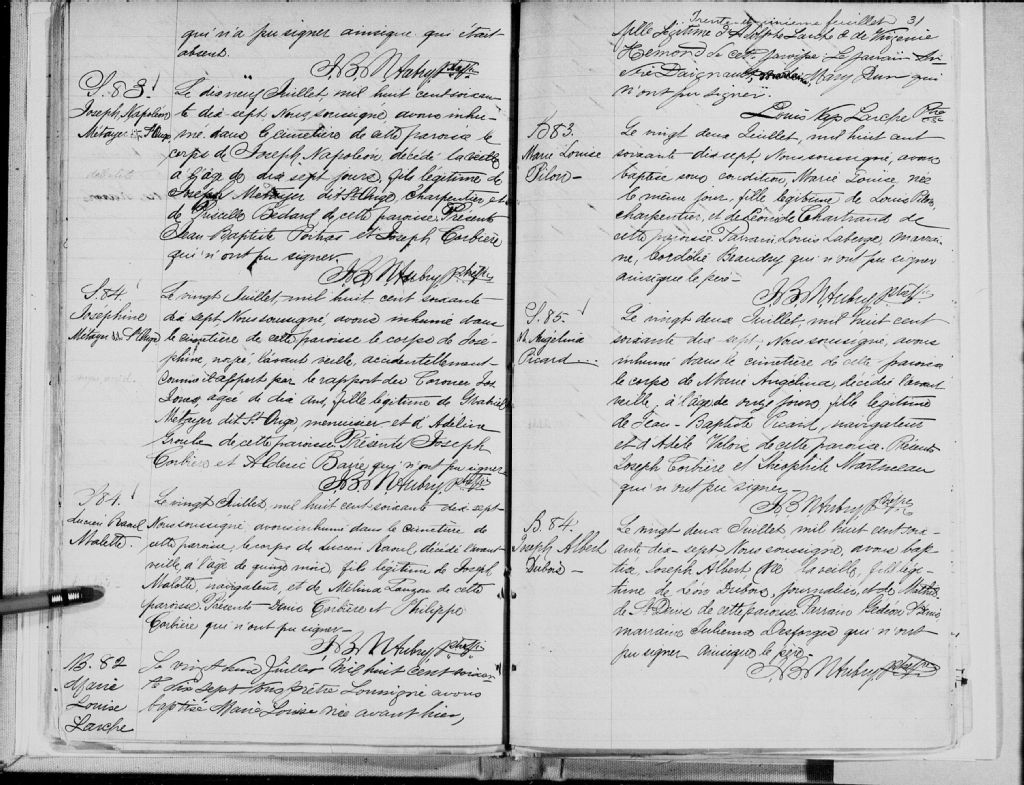 qui n'a pu signer ainsi que qui était
absent.
J. B. N. Aubry ptre
S. 83
Joseph, Napoléon
Métayer dit St Onge
Le dix neuf Juillet, mil huit cent soixan-
te dix-sept, Nous soussigné, avons inhu-
mé dans le cimetière de cette paroisse le
corps de Joseph, Napoléon, décédé la veille
à l'âge de dix sept jours, fils légitime de
Joseph Métayer dit St. Onge, Charpentier et
de Priscille Bédard de cette paroisse. Présents
Jean Baptiste Poitras et Joseph Corbière
qui n'ont pu signer.
J. B. N. Aubry ptre
S. 84
Josephine
Métayer dit St Onge
Le vingt Juillet, mil huit cent soixante-
dix sept Nous soussigné, avons inhumé dans
le cimetière de cette paroisse le corps de José-
phine, noyée, l'avant veille, accidentellement
comme il appert par le rapport du Coroner Jos
Jones, agée de dix ans, fille légitime de Gabriel
Métayer dit St. Onge, menuisier et d'Adéline
Groulx de cette paroisse. Présents Joseph
Corbière et Alderic Barre qui n'ont pu signer
J. B. N. Aubry ptre
S. 84
Lucien Raoul
Malette
Le vingt Juillet, mil huit cent soixante dix sept
Nous soussigné, avons inhumé dans le cimetière de
cette paroisse, le corps de Lucien Raoul décédé l'avant
veille, à l'âge de quinze mois, fils légitime de Joseph
Malette, navigateur, et de Mélina Lauzon de cette
paroisse. Présents Denis Corbière et Philippe
Corbière qui n'ont pu signer.
J. B. N. Aubry ptre
B. 82
Marie
Louise
Larche
Le vingt deux Juillet Mil huit cent soixan
te dix sept Nous prêtre soussigné avons
baptisé Marie Louise née avant hier,
Trente unieme feuillet 31
fille légitime d'Adolphe Larche & de Virginie
Hemond de cette paroisse. Le parrain
Daignault, marraine, Mary qui
n'ont pu signer.
Larche Ptre
B 83.
Marie Louise
Pilon
Le vingt deux Juillet, mil huit cent
soixante dix sept, Nous soussigné, avons
baptisé sous condition, Marie Louise, née
le même jour, fille légitime de Louis Pilon,
charpentier, et de Léonide Chartrand de
cette paroisse. Parrain Louis Laberge, marrai-
ne, Cordélie Beaudry qui n'ont pu signer
ainsi que le père
J. B. N. Aubry ptre
S. 85.
M. Angelina
Picard
Le vingt deux Juillet, mil huit cent
soixante dix sept, Nous soussigné, avons
inhumé dans le cimetière de cette paroisse
le corps de Marie Angélina, décédée l'avant
veille, à l'âge de onze jours, fille légitime
de Jean-Baptiste Picard, navigateur
et d'Adèle Valois de cette paroisse. Présents
Joseph Corbière et Théophile Martineau
qui n'ont pu signer
J. B. N. Aubry ptre
B. 84.
Joseph Albert
Dubois
Le vingt deux Juillet, mil huit cent soix-
ante dix-sept Nous soussigné, avons bap-
tisé, Joseph Albert, né la veille, fils légi-
time de Léon Dubois, journalier, et de Mathilde
de St Denis de cette paroisse Parrain St Denis
marraine Julienne Desforges qui n'ont
pu signer ainsi que le père
J. B. N. Aubry ptre